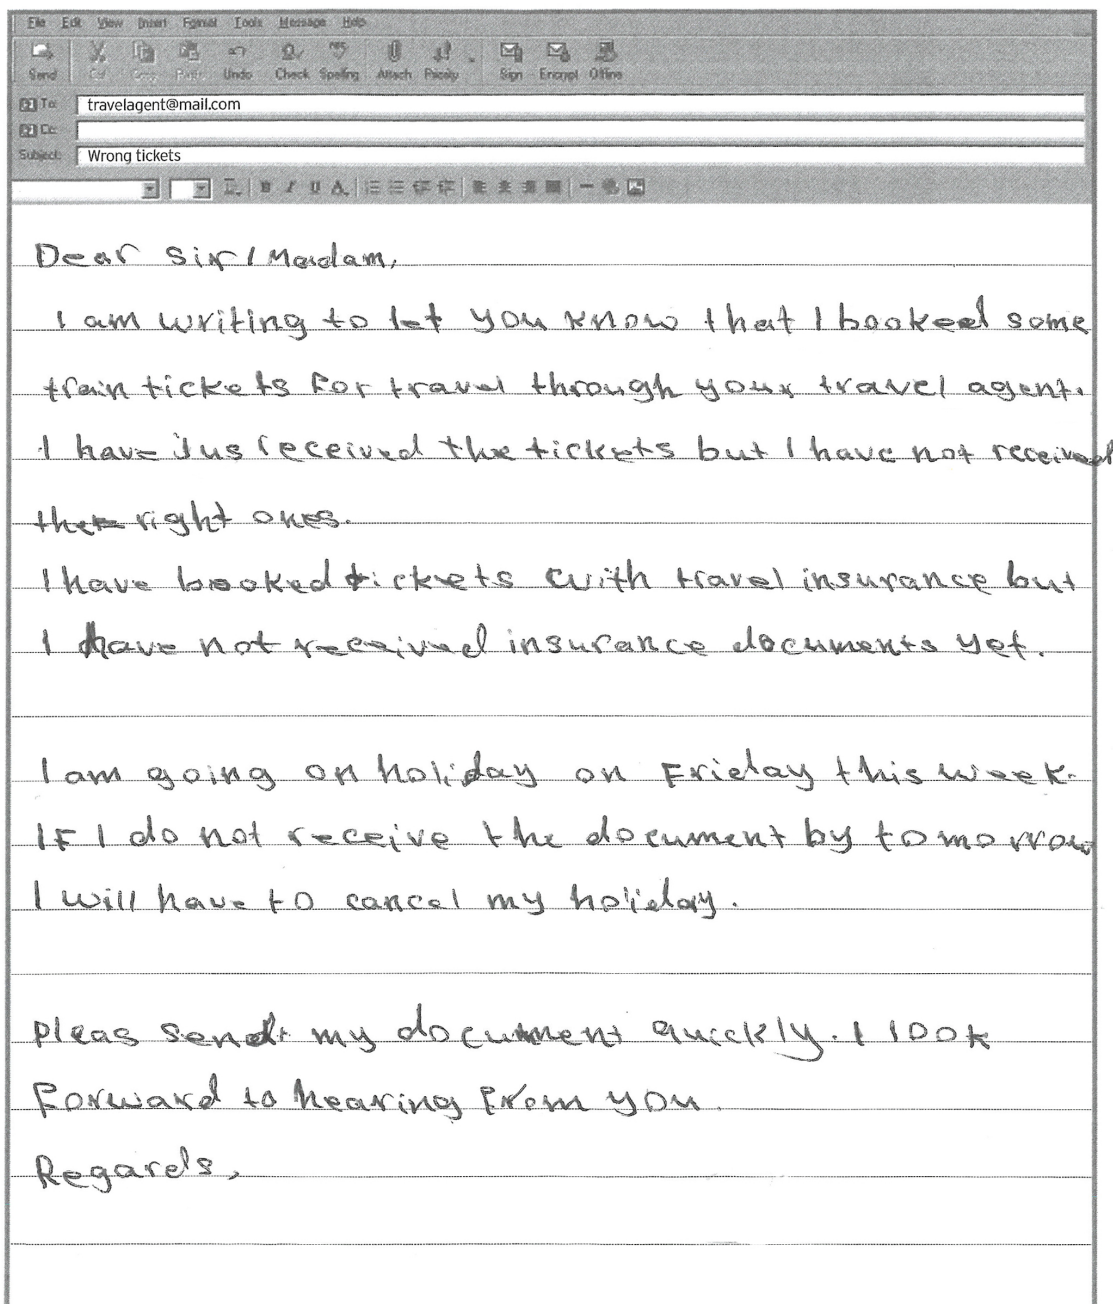 File Edit View Insert Format Tools Message Help
Send Cut Copy Paste Undo Check Spelling Attach Priority Sign Encrypt Offline
To: travelagent@mail.com
Cc:
Subject: Wrong tickets
Dear Sir/Madam,
I am writing to let you know that I booked some
train tickets for travel through your travel agent.
I have jus received the tickets but I have not received
the right ones.
I have booked tickets with travel insurance but
I have not received insurance documents yet.
I am going on holiday on Friday this week.
If I do not receive the document by tomorrow
I will have to cancel my holiday.
Pleas send my document quickly. I look
forward to hearing from you.
Regards,